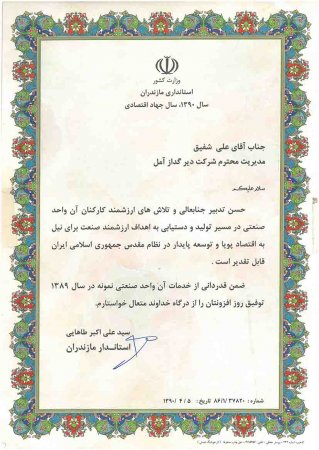 وزارت کشور
استانداری مازندران
سال ۱۳۹۰، سال جهاد اقتصادی
جناب آقای علی شفیق
مدیریت محترم شرکت دیر گداز آمل
سلام علیکم
حسن تدبیر جنابعالی و تلاش های ارزشمند کارکنان آن واحد
صنعتی در مسیر تولید و دستیابی به اهداف ارزشمند صنعت برای نیل
به اقتصاد پویا و توسعه پایدار در نظام مقدس جمهوری اسلامی ایران
قابل تقدیر است .
ضمن قدردانی از خدمات آن واحد صنعتی نمونه در سال ۱۳۸۹
توفیق روز افزونتان را از درگاه خداوند متعال خواستارم.
سید علی اکبر طاهایی
استاندار مازندران
شماره : ۸۶/۱/۳۷۸۲۰ تاریخ: ۱۳۹۰/۴/۵